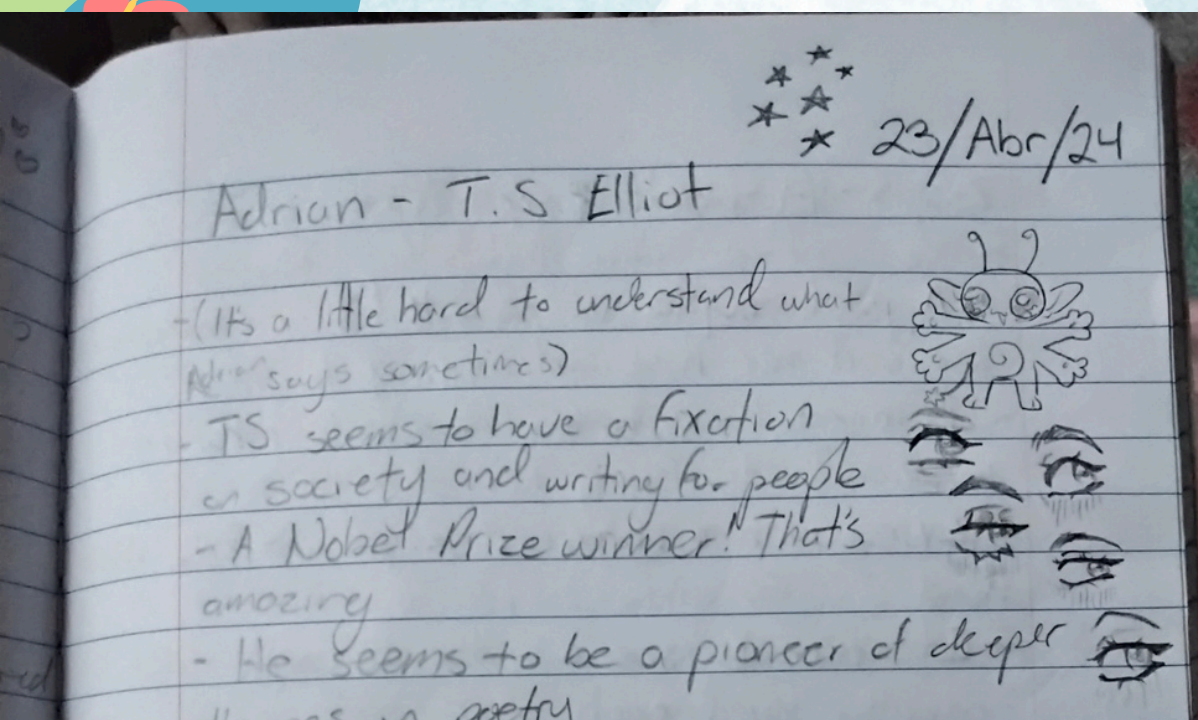 23/Abr/24
Adrian - T.S Elliot
+(It's a little hard to understand what
Adrian says sometimes)
- TS seems to have a fixation
on society and writing for people
- A Nobel Prize winner! That's
amazing
- He seems to be a pioneer of deeper
in poetry